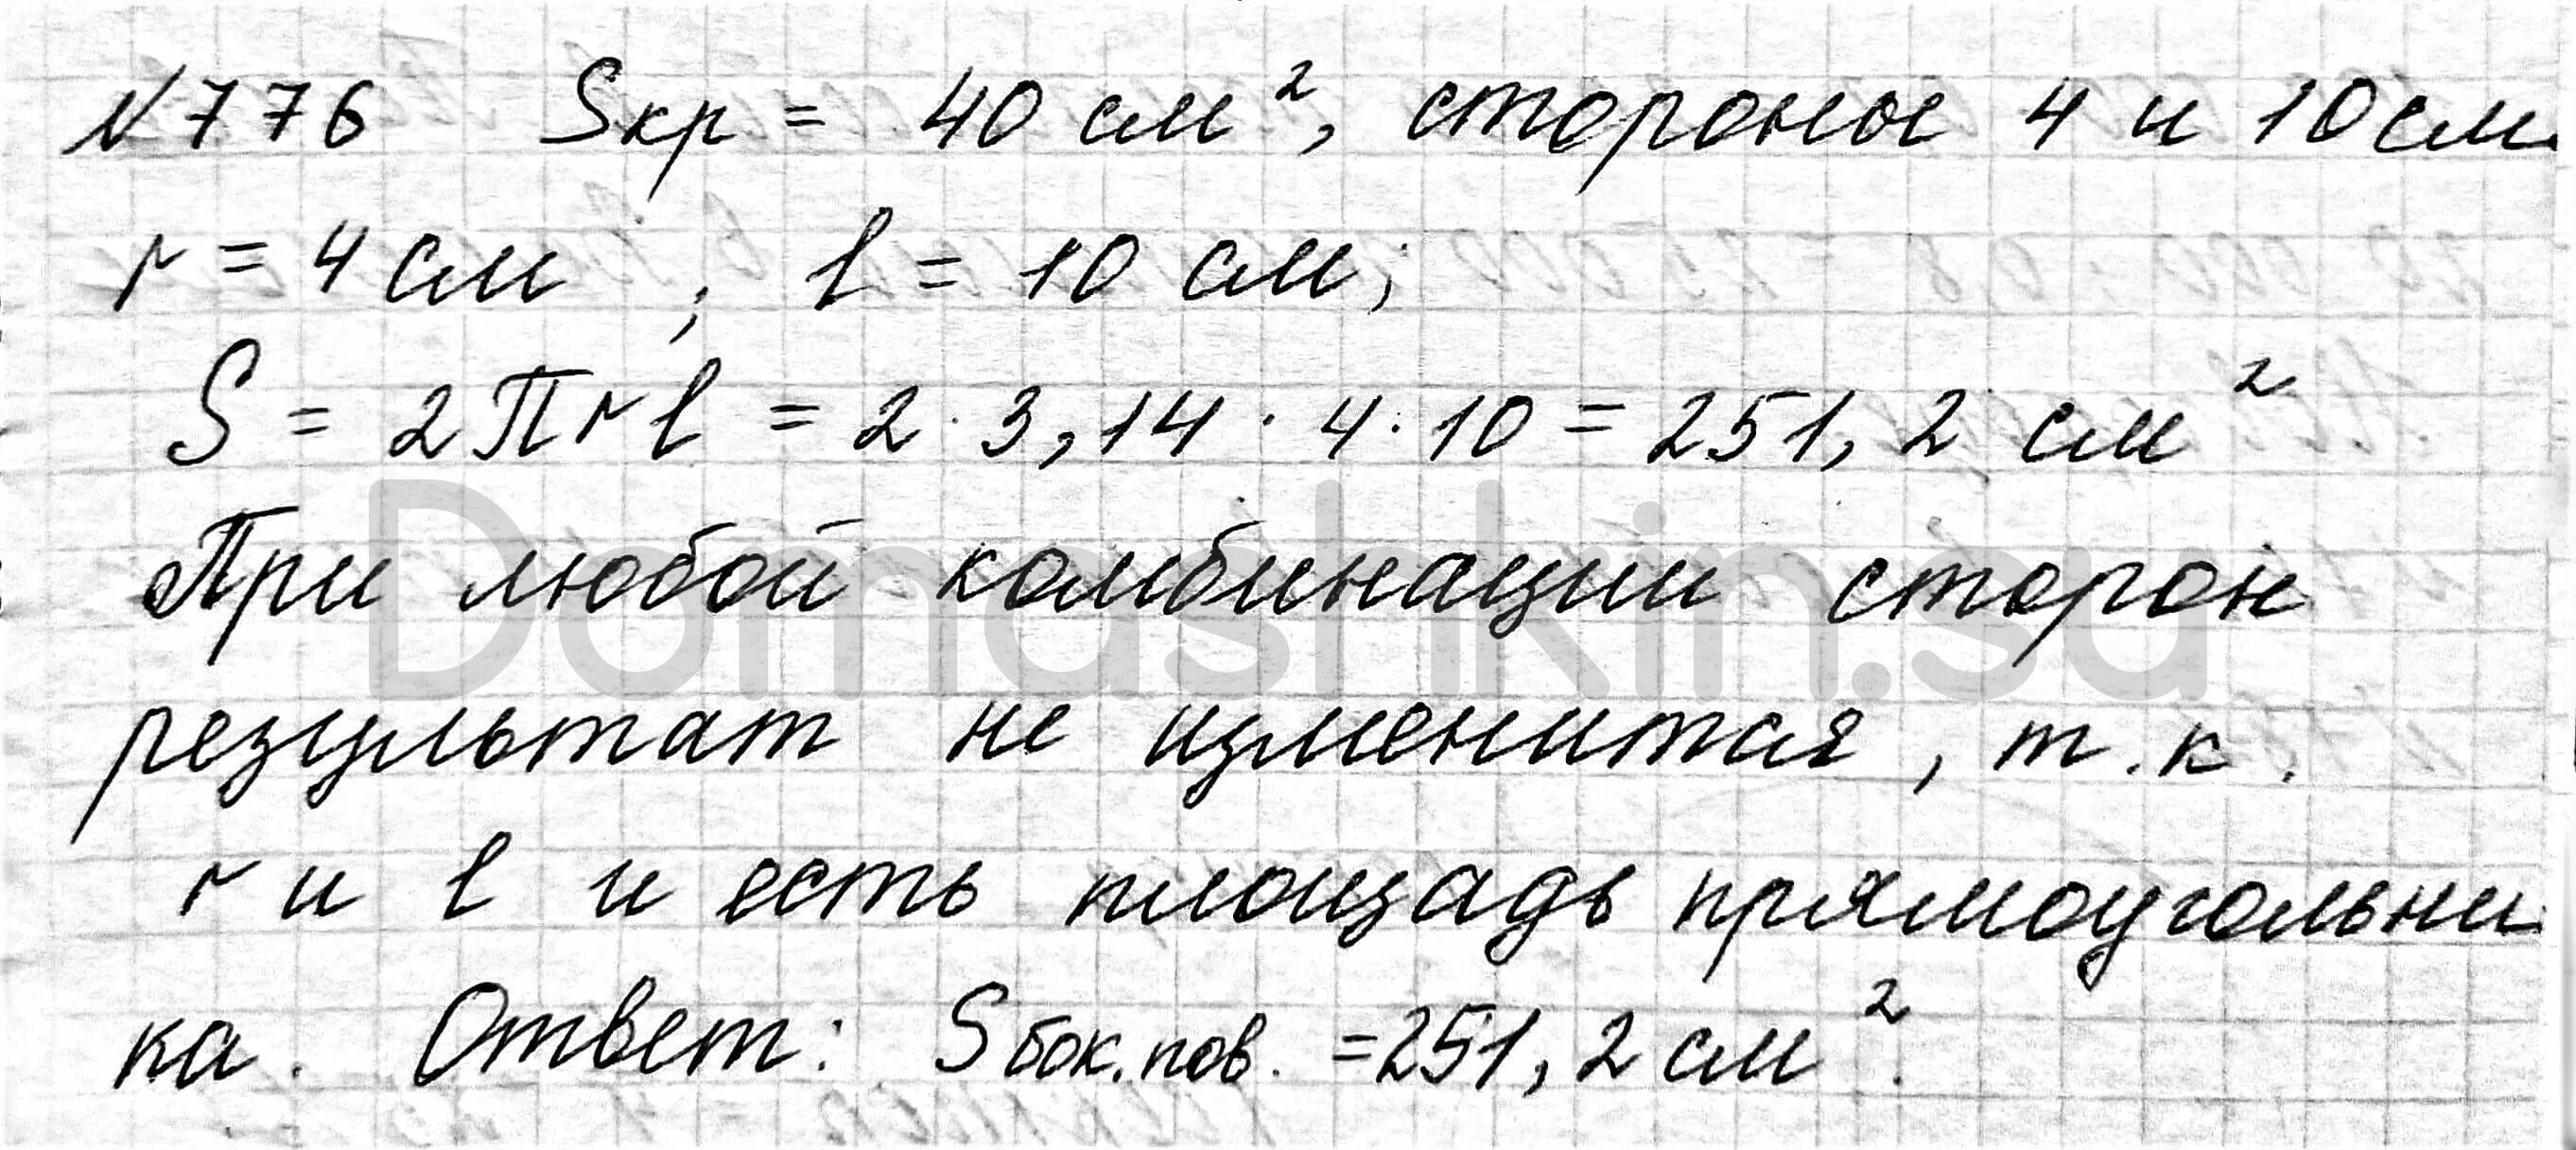 №776 Sкр = 40 см², стороны 4 и 10 см.
r = 4 см ; l = 10 см;
S = 2πrl = 2 · 3,14 · 4 · 10 = 251,2 см²
При любой комбинации сторон
Domashkin.su
результат не изменится, т.к.
r и l и есть площадь прямоугольни
ка. Ответ: Sбок.пов. = 251,2 см².